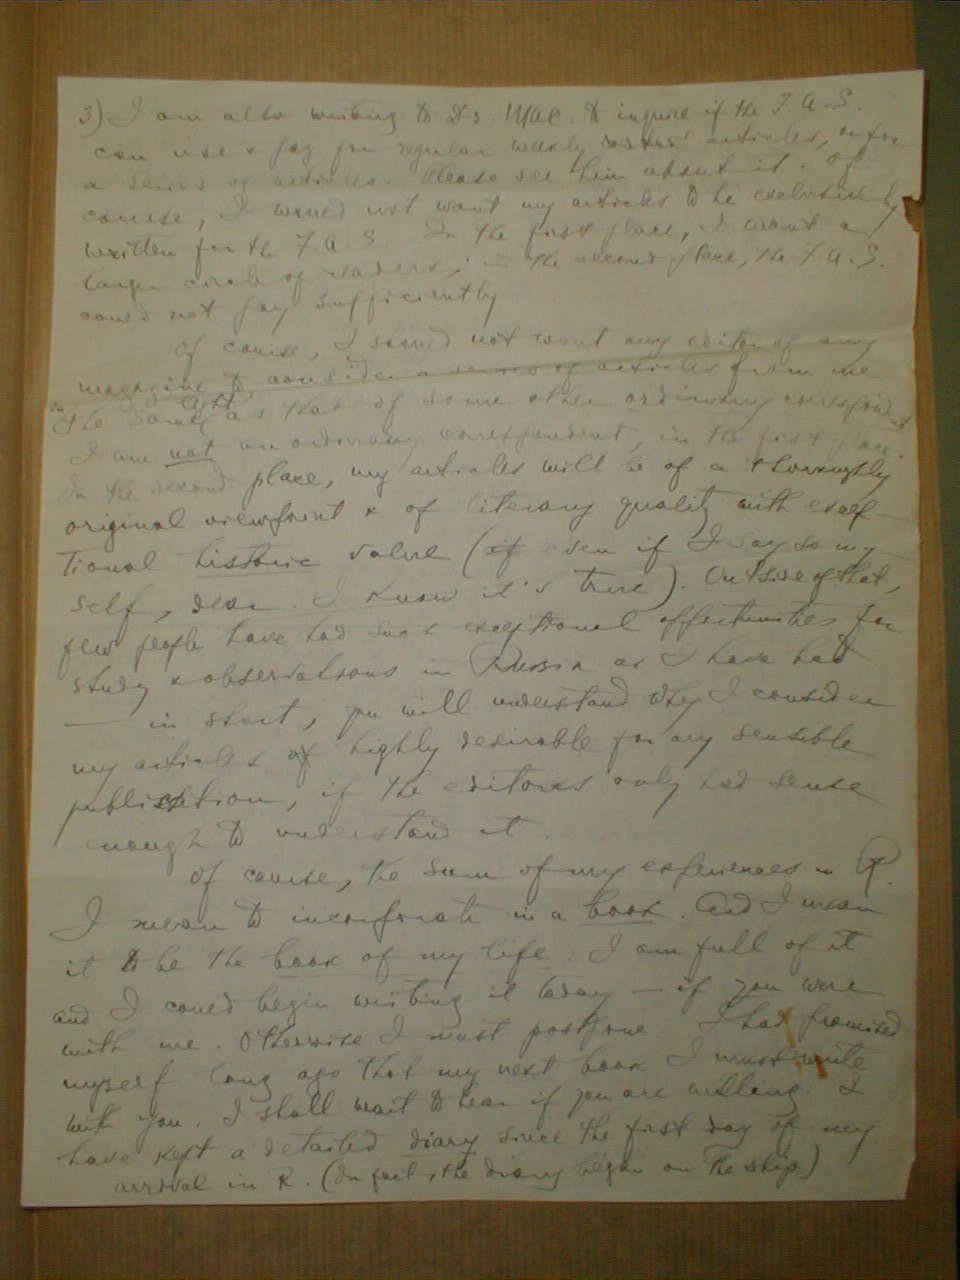 3) I am also writing to Dr. Mac. to inquire if the F.A.S.
can use & pay for regular weekly articles, or for
a series of articles. Please see him about it. Of
course, I would not want my articles to be exclusively
written for the F.A.S. In the first place, I want a
larger circle of readers; in the second place, the F.A.S.
could not pay sufficiently.
Of course, I should not want any editor of any
magazine to consider a series of articles from me
in the same light as that of some other ordinary correspondent
I am not an ordinary correspondent, in the first place.
In the second place, my articles will be of a thoroughly
original viewpoint & of literary quality with excep-
tional historic value (if even if I say so my-
self, dear. I know it's true). Outside of that,
few people have had such exceptional opportunities for
study & observations in Russia as I have had
— in short, you will understand why I consider
my articles of highly desirable for any sensible
publication, if the editores only had sense
enough to understand it.
Of course, the sum of my experiences in R.
I mean to incorporate in a book. And I mean
it to be the book of my life. I am full of it
and I could begin writing it today — if you were
with me. Otherwise I must postpone. I had promised
myself long ago that my next book I must write
with you. I shall wait to hear if you are willing. I
have kept a detailed diary since the first day of my
arrival in R. (In fact, the diary began on the ship)